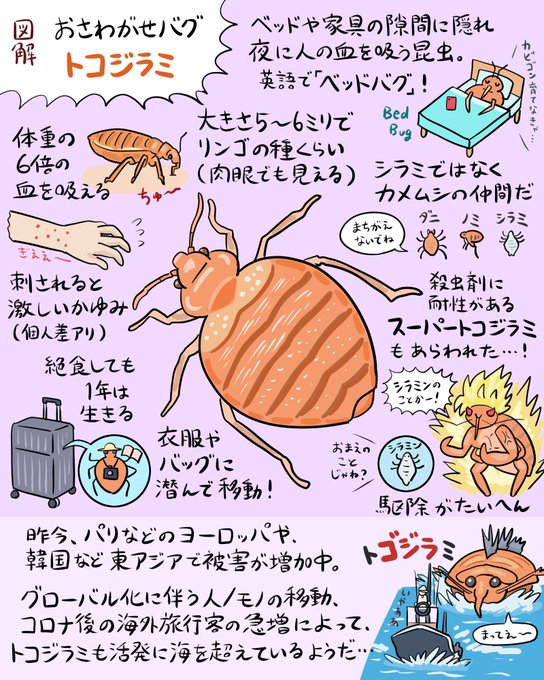 図解
おさわがせバグ
トコジラミ
ベッドや家具の隙間に隠れ
夜に人の血を吸う昆虫。
英語で「ベッドバグ」!
カビゴン育てなきゃ…
Bed
Bug
体重の
6倍の
血を吸える
ちゅ〜
大きさ5〜6ミリで
リンゴの種くらい
(肉眼でも見える)
シラミではなく
カメムシの仲間だ
まちがえ
ないでね
ダニ
ノミ
シラミ
ぎええ〜
刺されると
激しいかゆみ
(個人差アリ)
殺虫剤に
耐性がある
スーパートコジラミ
もあらわれた…!
シラミンの
ことかー!
絶食しても
1年は
生きる
衣服や
バッグに
潜んで移動!
おまえの
こと
じゃね?
シラミン
駆除がたいへん
昨今、パリなどのヨーロッパや、
韓国など東アジアで被害が増加中。
グローバル化に伴う人/モノの移動、
コロナ後の海外旅行客の急増によって、
トコジラミも活発に海を超えているようだ…
トゴジラミ
まってぇ〜